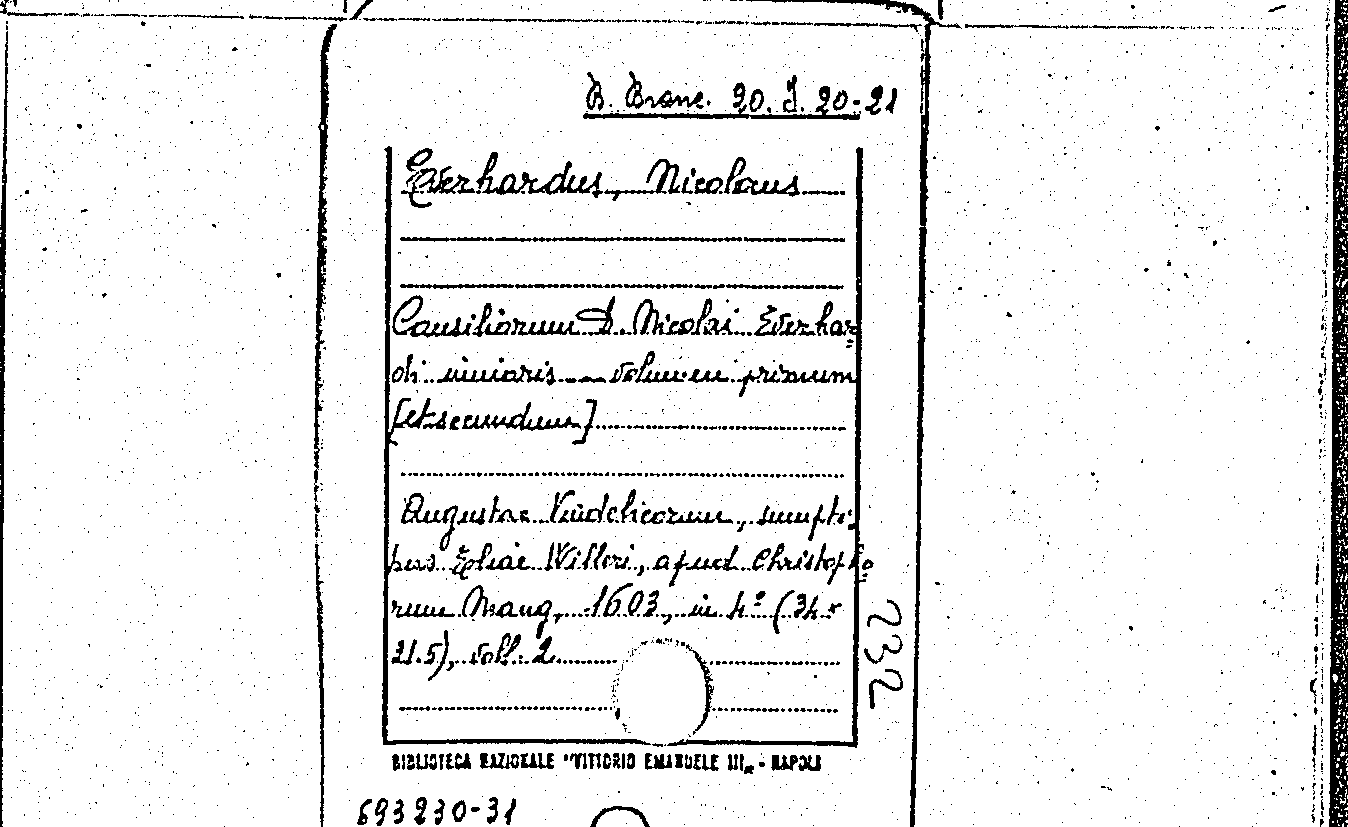 B. Branc. 20. I. 20-21
Everhardus, Nicolaus
Consiliorum D. Nicolai Everhar=
di iunioris ... volumen primum
[et secundum]
Augustae Vindelicorum, sumpti=
bus Eliae Willeri, apud Christopho=
rum Mang, 1603, in 4º (34 x
21.5), voll. 2
BIBLIOTECA NAZIONALE "VITTORIO EMANUELE III„ - NAPOLI
693230-31
232